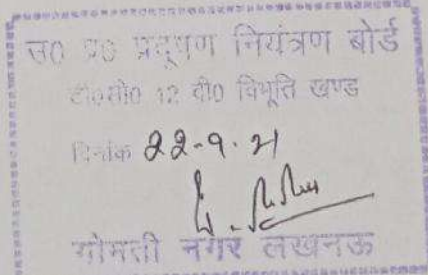 उ० प्र० प्रदूषण नियंत्रण बोर्ड
टी०सी० 12 वी० विभूति खण्ड
दिनांक 22-9-21
गोमती नगर लखनऊ